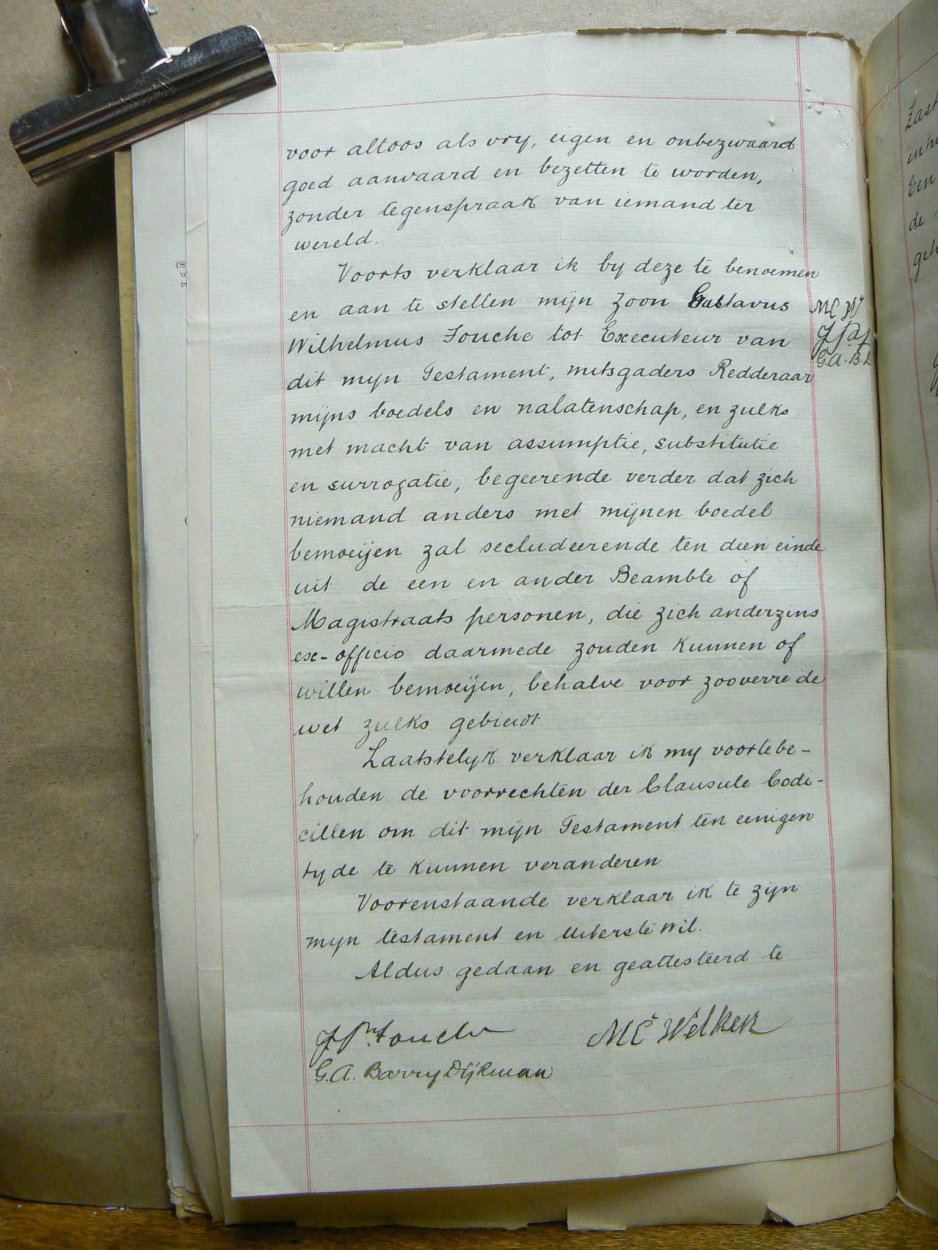 voor altoos als vry, eigen en onbezwaard
goed aanvaard en bezetten te worden,
zonder tegenspraak van iemand ter
wereld.
Voorts verklaar ik by deze te benoemen
en aan te stellen mijn zoon Gustavus
Wilhelmus Fouche tot Executeur van
dit mijn Testament, mitsgaders Redderaar
mijns boedels en nalatenschap, en zulks
met macht van assumptie, substitutie
en surrogatie, begeerende verder dat zich
niemand anders met mijnen boedel
bemoeijen zal secludeerende ten dien einde
uit de een en ander Beambte of
Magistraats personen, die zich anderzins
ex-officio daarmede zouden kunnen of
willen bemoeijen, behalve voor zooverre de
wet zulks gebiedt.
Laatstelyk verklaar ik my voortebe-
houden de voorrechten der Clausule Codi-
cillen om dit mijn Testament ten eenigen
tyde te kunnen veranderen
Voorenstaande verklaar ik te zijn
mijn testament en uiterste wil.
Aldus gedaan en geattesteerd te
MC W
G.A.B.D
Fouche
MC Welken
G.A. Barry Dijkman